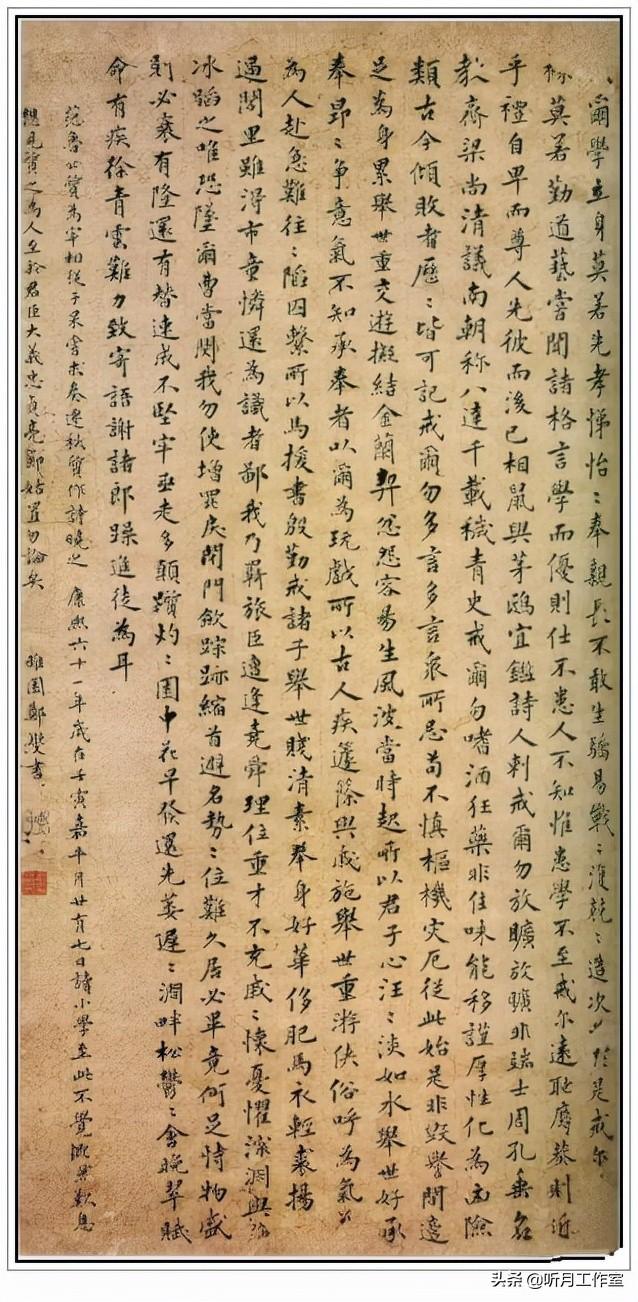 爾學立身莫若先孝悌怡〻奉親長不敢生驕易戰〻復兢〻造次必於是戒尔
莫若勤道藝嘗聞諸格言學而優則仕不患人不知惟患學不至戒尔遠恥辱恭則近
乎禮自卑而尊人先彼而後已相鼠與茅鴟宜鑑詩人刺戒爾勿放曠放曠非端士周孔垂名
教齊梁尚清議南朝称八達千載穢青史戒爾勿嗜酒狂藥非佳味能移謹厚性化為凶險
類古今傾敗者歷〻皆可記戒爾勿多言多言衆所忌苟不慎樞機灾厄從此始是非毀譽間適
足為身累舉世重交遊擬結金蘭契忿怨容易生風波當時起所以君子心汪〻淡如水舉世好承
奉昂〻争意氣不知承奉者以爾為玩戲所以古人疾籧篨與戚施舉世重游俠俗呼為氣
為人赴急難往〻陷囚繫所以馬援書殷勤戒諸子舉世賤清素奉身好華侈肥馬衣輕裘揚
過閭里雖得市童憐還為識者鄙我乃羇旅臣遭逢堯舜理位重才不充戚〻懷憂懼深淵與
冰蹈之唯恐墜爾曹當閔我勿使增罪戾閉門斂踪跡縮首避名勢〻位難久居必畢竟何足恃物盛
則必衰有隆還有替速成不堅牢亟走多顛躓灼〻園中花早發還先萎遲〻澗畔松鬱〻含晚翠賦
命有疾徐青雲難力致寄語謝諸郎躁進徒為耳
范魯公質為宰相從子杲嘗求奏遷秩質作詩曉之 康熙六十一年歲在壬寅嘉平月廿有七日讀小學至此不覺慨然歎息
想見質之為人至於君臣大義忠貞亮節姑置勿論矣 雎園鄭燮書
头条 @听月工作室